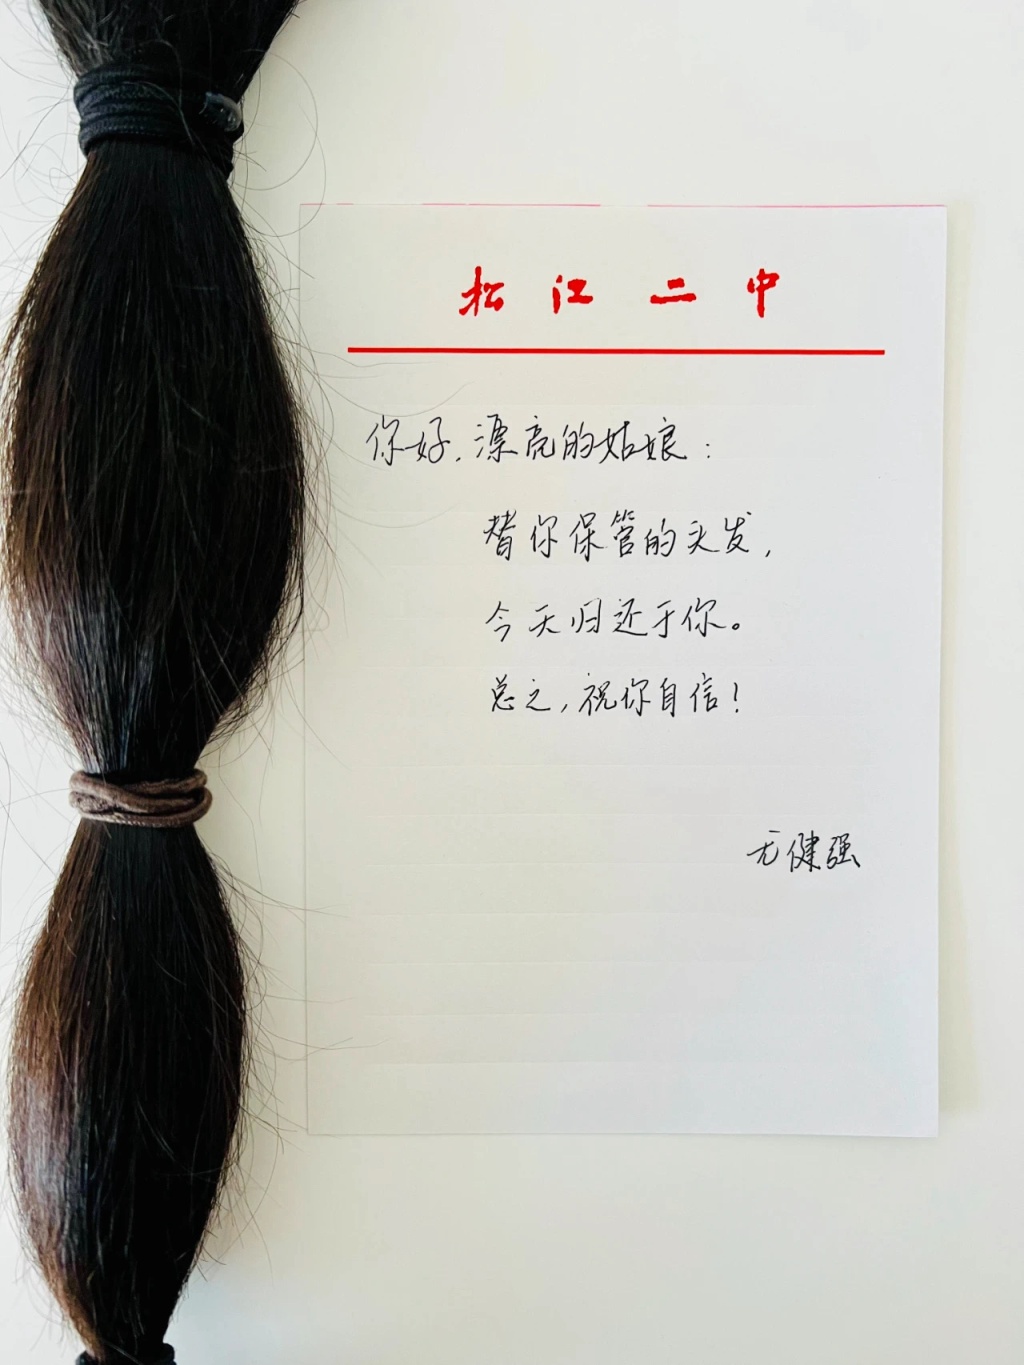 松江二中
你好，漂亮的姑娘：
替你保管的头发，
今天归还于你。
总之，祝你自信！
尤健强